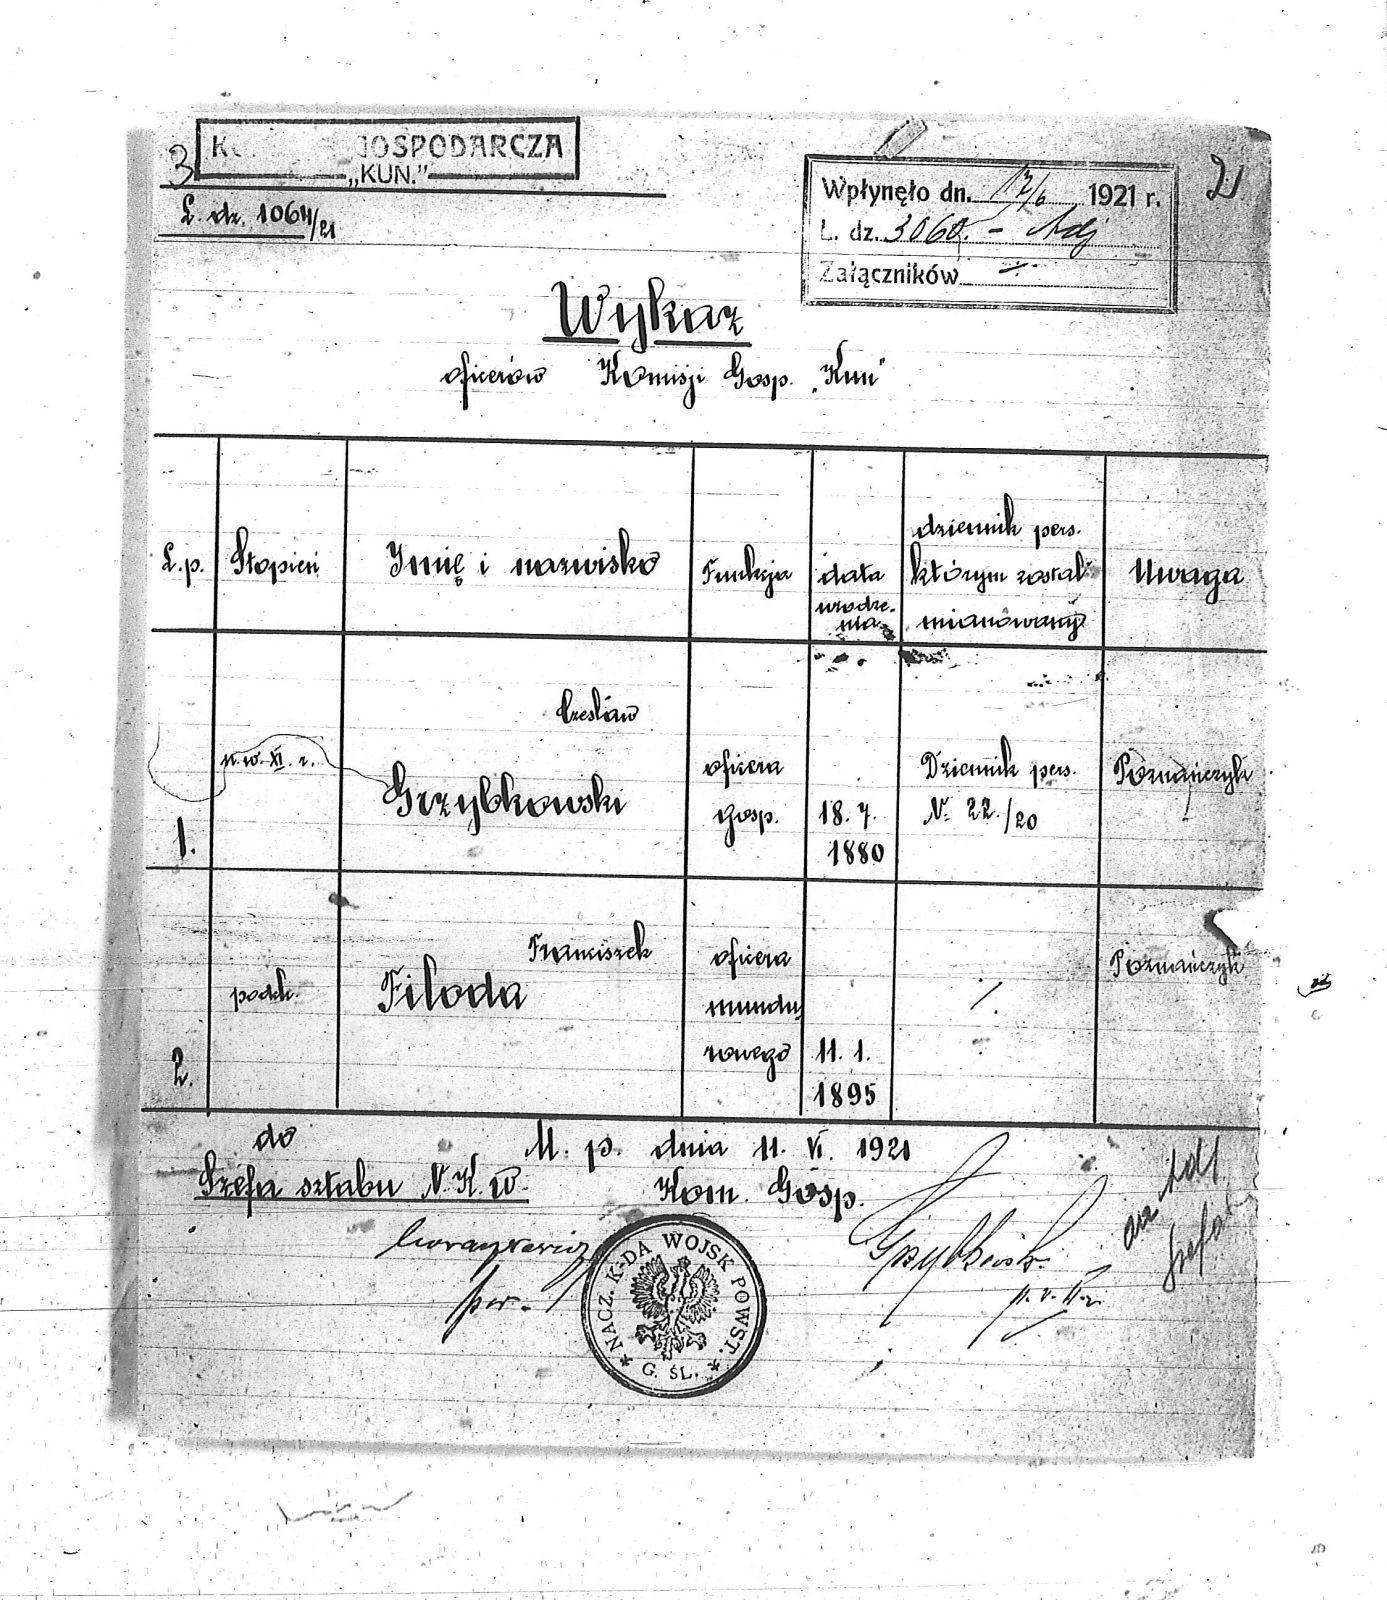 3
GOSPODARCZA
„KUN.”
L. dz. 1064/21
Wpłynęło dn. 17/6 1921 r.
L. dz. 3060. - Adj
Załączników
2
Wykaz
oficerów Komisji Gosp. „Kun”
L.p. Stopień Imię i nazwisko Funkcja data urodze-nia dziennik pers. którym został mianowany Uwaga
1. p.w. XI. r. Czesław Grzybkowski oficera gosp. 18. 7. 1880 Dziennik pers. Nr. 22./20 Poznańczyk
2. podch. Franciszek Filoda oficera mundurowego 11. 1. 1895 /. Poznańczyk
do
M. p. dnia 11. VI. 1921
Szefa sztabu N. K. W.
Kom. Gosp.
por.
Grzybkowski
NACZ. K-DA WOJSK POWST.
* G. ŚL. *